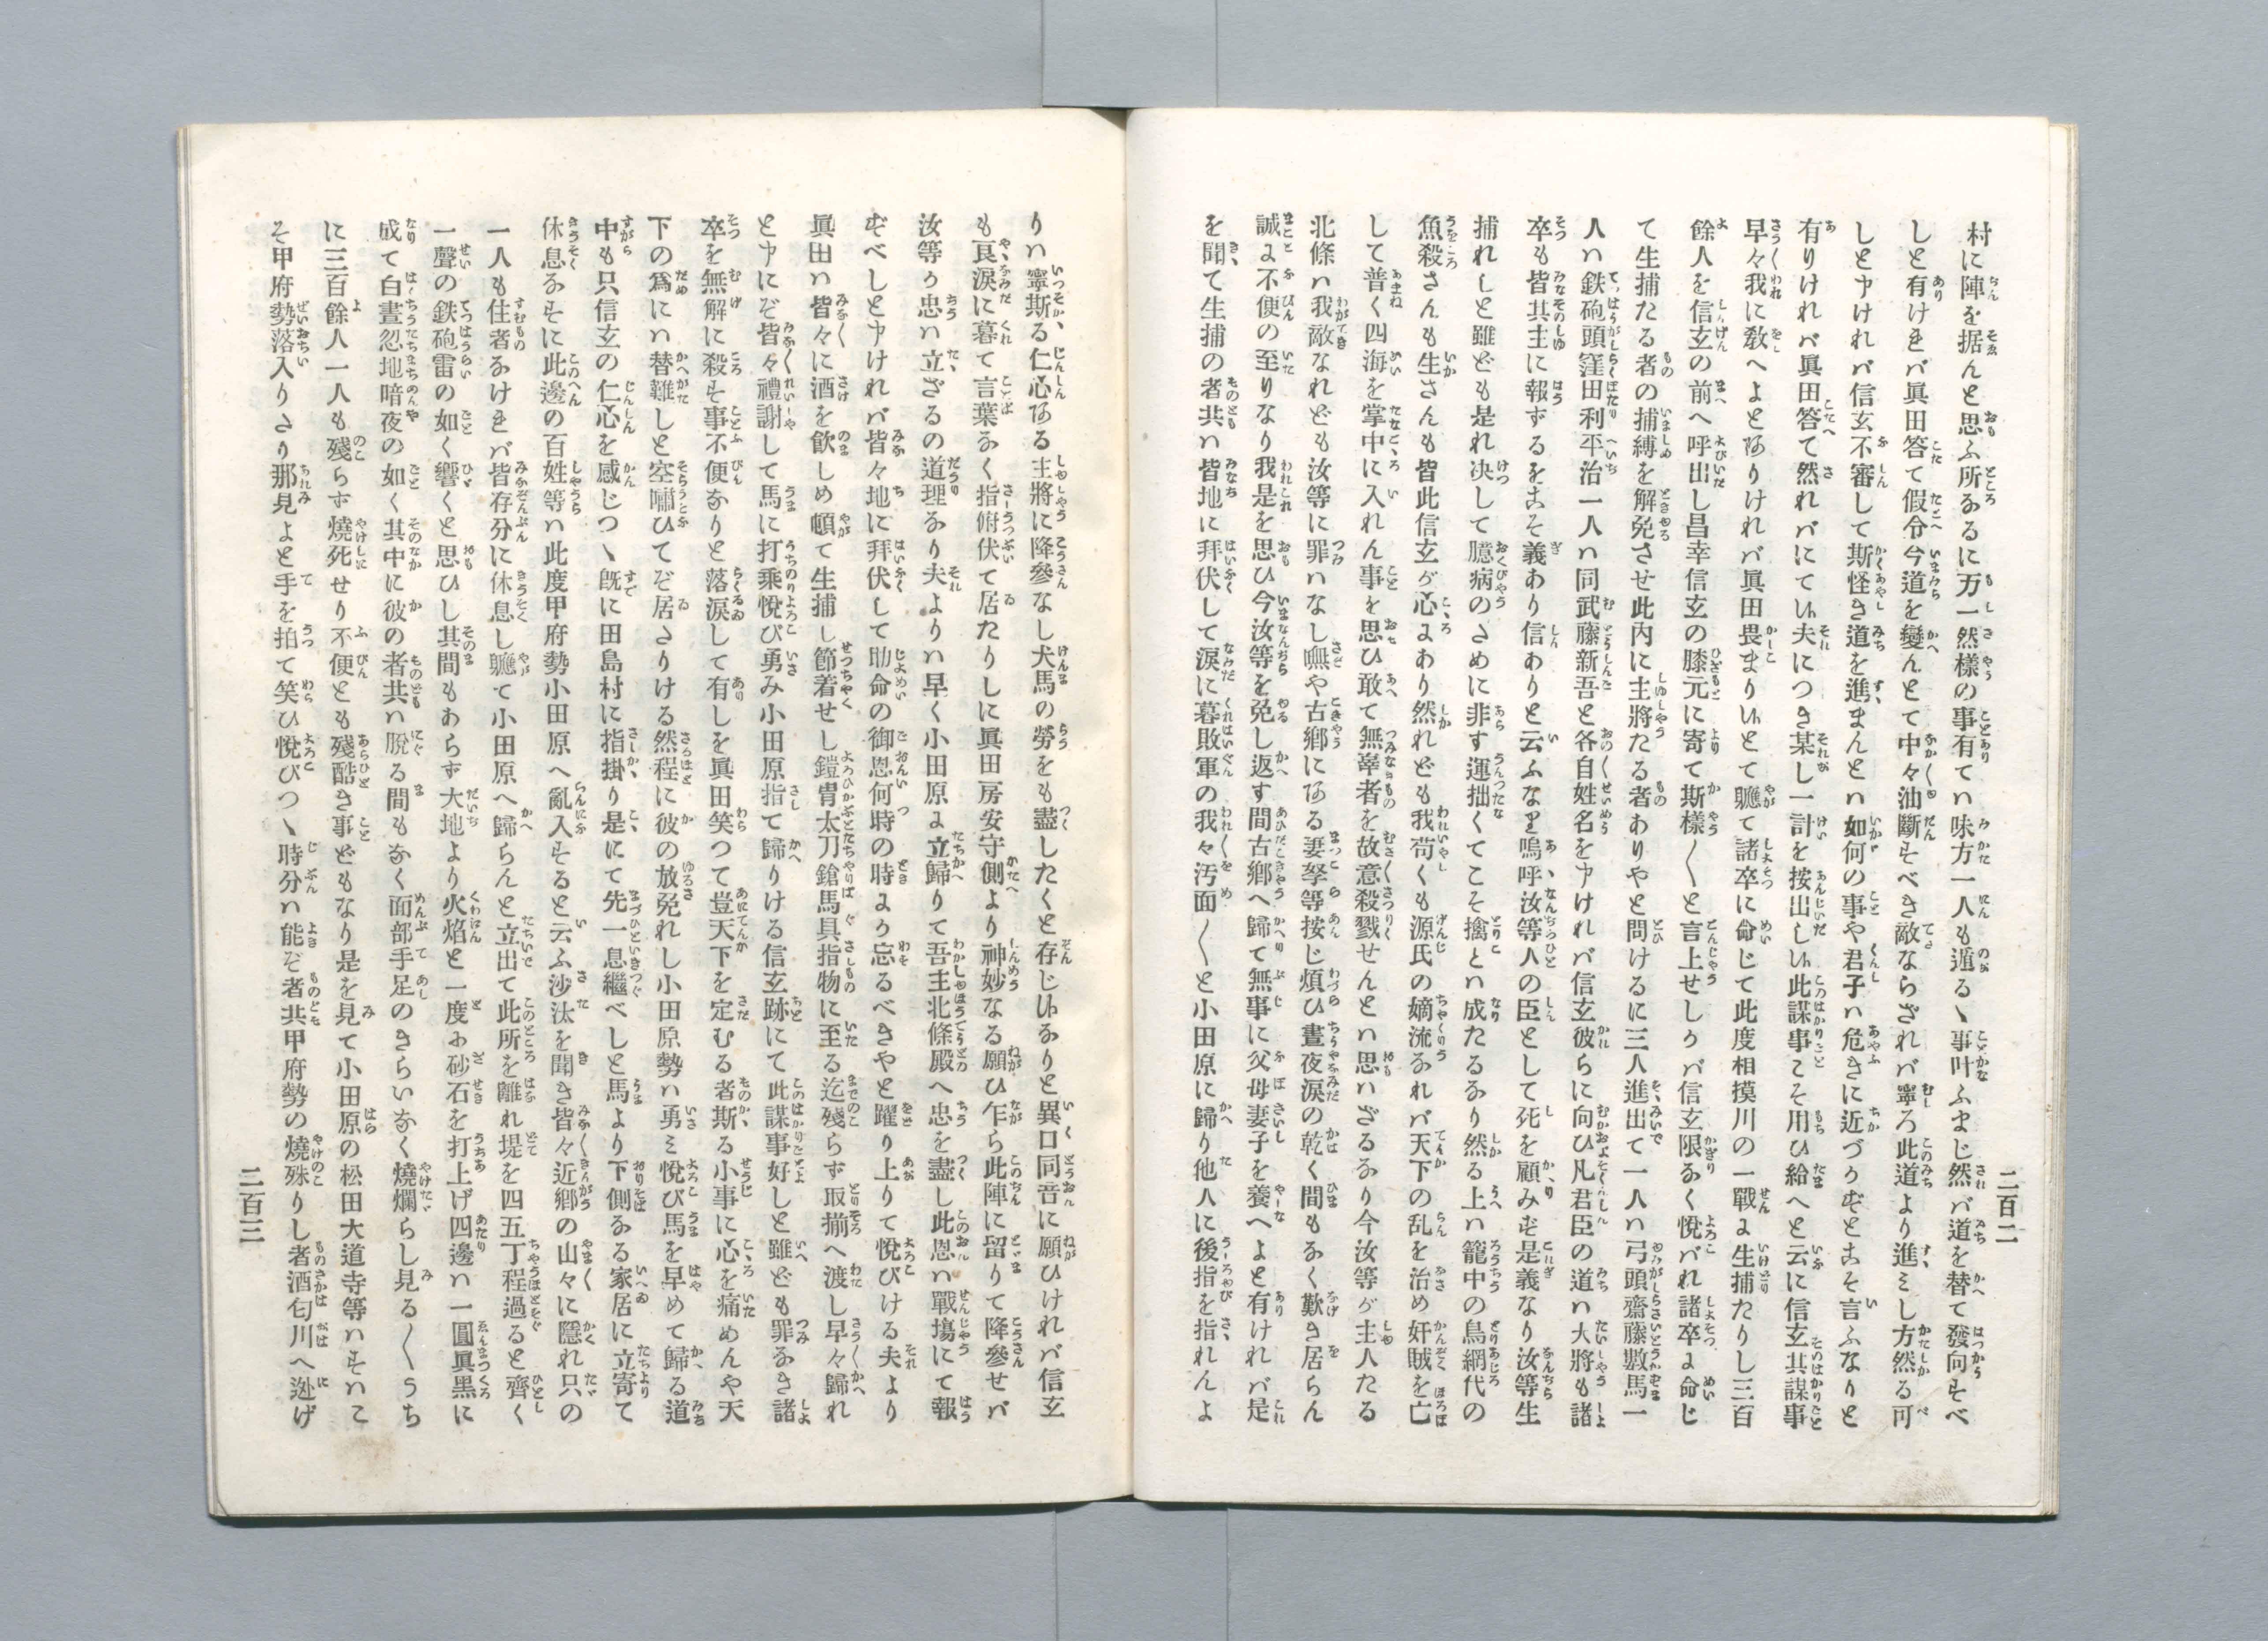 二百二
村に陣を据んと思ふ所あるに万一然樣の事有てハ味方一人も遁るヽ事叶ふまじ然バ道を替て發向すべ
しと有けれバ眞田答て假令今道を變んとて中々油斷すべき敵ならざれバ寧ろ此道より進ミし方然る可
しと申けれバ信玄不審して斯怪き道を進まんとハ如何の事や君子ハ危きに近づかずとこそ言ふなりと
有りけれバ眞田答て然れバにてい夫につき某し一計を按出しい此謀事こそ用ひ給へと云に信玄其謀事
早々我に敎へよとありけれバ眞田畏まりいとて軈て諸卒に命じて此度相摸川の一戰に生捕たりし三百
餘人を信玄の前へ呼出し昌幸信玄の膝元に寄て斯樣〳〵と言上せしかバ信玄限なく悅バれ諸卒に命じ
て生捕たる者の捕縛を解免させ此内に主將たる者ありやと問けるに三人進出て一人ハ弓頭齋藤數馬一
人ハ鉄砲頭窪田利平治一人ハ同武藤新吾と各自姓名を申けれバ信玄彼らに向ひ凡君臣の道ハ大將も諸
卒も皆其主に報ずるをこそ義あり信ありと云ふなり嗚呼汝等人の臣として死を顧みず是義なり汝等生
捕れしと雖ども是れ决して臆病のさめに非す運拙くてこそ擒とハ成たるなり然る上ハ籠中の鳥網代の
魚殺さんも生さんも皆此信玄が心にあり然れども我苟くも源氏の嫡流なれバ天下の乱を治め奸賊を亡
して普く四海を掌中に入れん事を思ひ敢て無辜者を故意殺戮せんとハ思ハざるなり今汝等が主人たる
北條ハ我敵なれども汝等に罪ハなし嘸や古鄕にある妻孥等按じ煩ひ晝夜涙の乾く間もなく歎き居らん
誠に不便の至りなり我是を思ひ今汝等を免し返す間古鄕へ歸て無事に父母妻子を養へよと有けれバ是
を聞て生捕の者共ハ皆地に拜伏して涙に暮敗軍の我々汚面〳〵と小田原に歸り他人に後指を指れんよ
りハ寧斯る仁心ある主將に降參なし犬馬の勞をも盡したくと存じいなりと異口同音に願ひけれバ信玄
も哀涙に暮て言葉なく指俯伏て居たりしに眞田房安守側より神妙なる願ひ乍ら此陣に留りて降參せバ
汝等が忠ハ立ざるの道理なり夫よりハ早く小田原に立歸りて吾主北條殿へ忠を盡し此恩ハ戰塲にて報
ずべしと申けれバ皆々地に拜伏して助命の御恩何時の時にか忘るべきやと躍り上りて悅びける夫より
眞田ハ皆々に酒を飮しめ頓て生捕し節着せし鎧冑太刀鎗馬具指物に至る迄殘らず取揃へ渡し早々歸れ
と申にぞ皆々禮謝して馬に打乘悅び勇み小田原指て歸りける信玄跡にて此謀事好しと雖ども罪なき諸
卒を無解に殺す事不便なりと落涙して有しを眞田笑つて豈天下を定むる者斯る小事に心を痛めんや天
下の爲にハ替難しと空嘯ひてぞ居さりける然程に彼の放免れし小田原勢ハ勇ミ悅び馬を早めて歸る道
中も只信玄の仁心を感じつヽ既に田島村に指掛り是にて先一息繼べしと馬より下側なる家居に立寄て
休息なすに此邊の百姓等ハ此度甲府勢小田原へ亂入すると云ふ沙汰を聞き皆々近鄕の山々に隱れ只の
一人も住者なけれバ皆存分に休息し軈て小田原へ歸らんと立出て此所を離れ堤を四五丁程過ると齊く
一聲の鉄砲雷の如く響くと思ひし其間もあらず大地より火焰と一度に砂石を打上げ四邊ハ一圓眞黑に
成て白晝忽地暗夜の如く其中に彼の者共ハ脫る間もなく面部手足のきらいなく燒爛らし見る〳〵うち
に三百餘人一人も殘らす燒死せり不便とも殘酷き事どもなり是を見て小田原の松田大道寺等ハすハこ
そ甲府勢落入りさり那見よと手を拍て笑ひ悅びつヽ時分ハ能ぞ者共甲府勢の燒殊りし者酒匂川へ迯げ
二百三